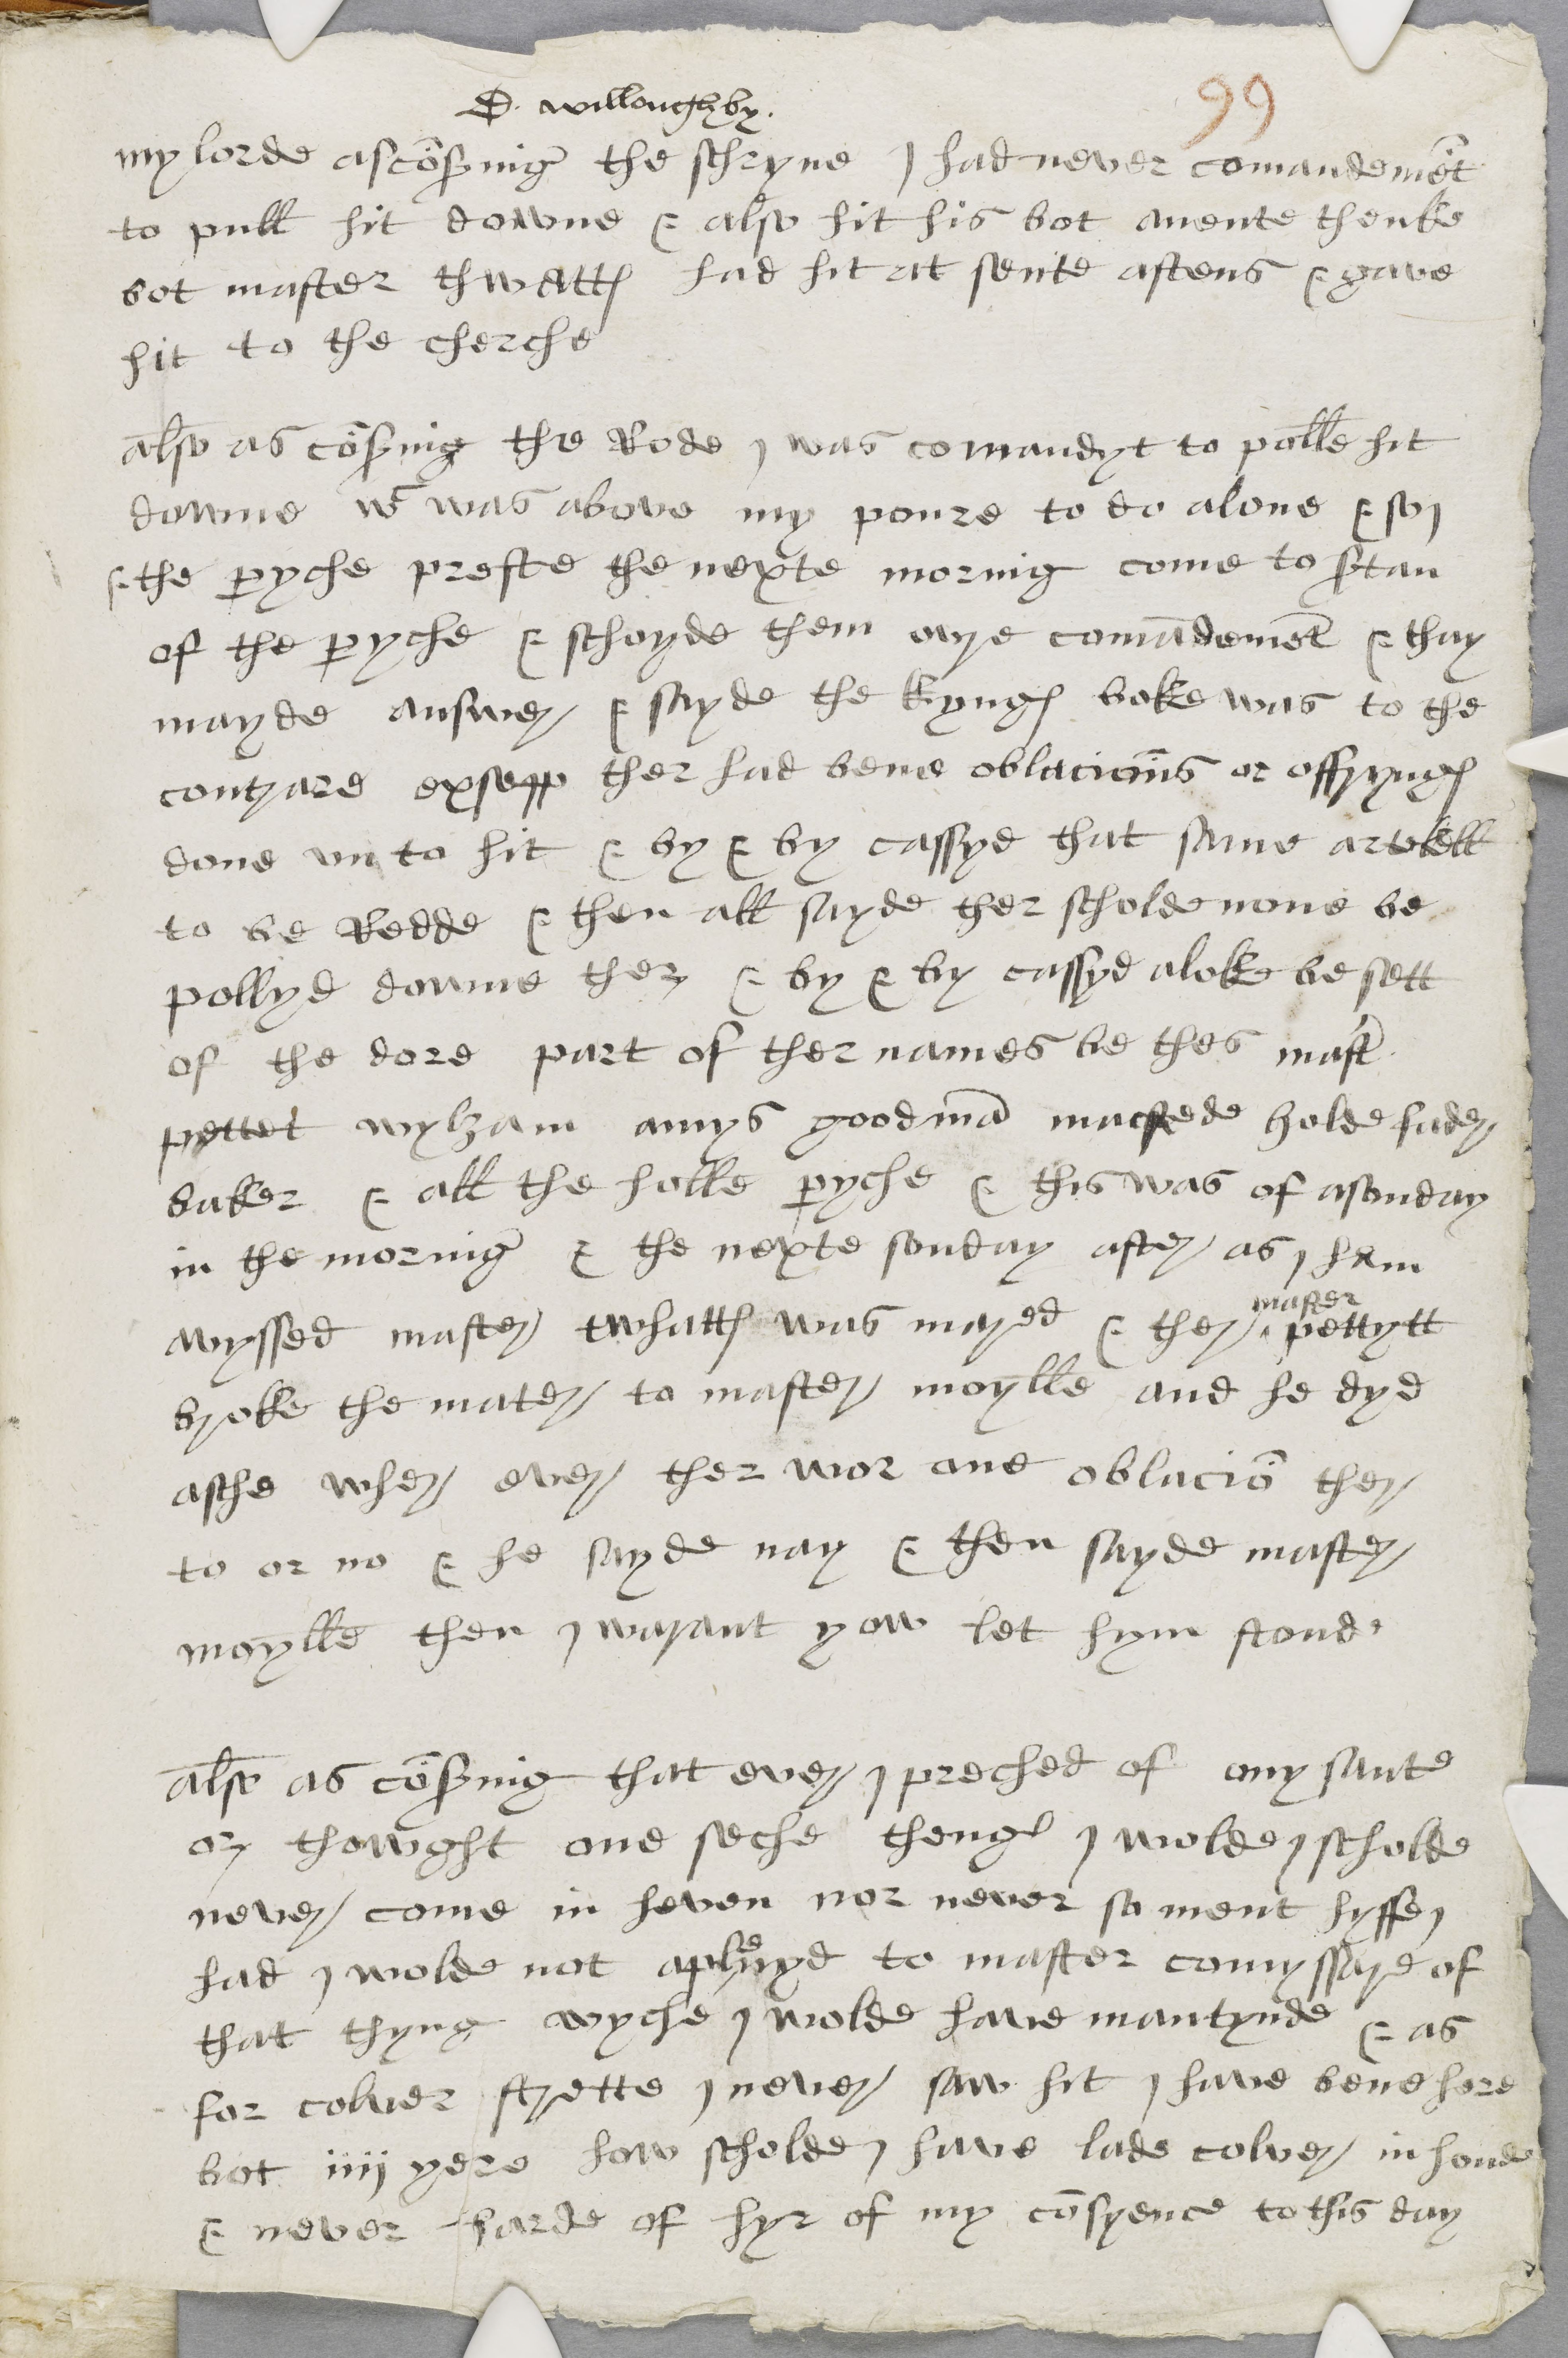 D. Willoughby.
99
my lorde as cõsꝑnig the schryne I had never comandemẽt
to pull hit downe & also hit his bot anente thenke
bot master thwatts had hit at sente astens & gave
hit to the cherche
also as cõsꝑnig the Rode I was comandyt to polle hit
downe wc was above my poure to do alone & so I
& the ꝑyche preste the nexte mornig come to sꝑtan
of the ꝑyche & schoyde them owre comãdemẽt & thay
mayde answer & sayde the kyngs boke was to the
contrare exsepp ther had bene oblacions or offryngs
done un to hit & by & by cassyd that same artekell
to be Redde & then all sayde ther scholde none be
pollyd downe ther & by & by cassyd a loke be sett
of the dore part of ther names be thes mastr
pettet wylzam amys goodmã macstede holde fader
baker & all the holle ꝑyche & this was of a sonday
in the mornig & the nexte sonday after as I ham
wyssed master twhatts was mayed & ther master pettytt
broke the mater to master moylle and he dyd
asche wher ever ther wor one oblaciõ ther
to or no & he sayde nay & then sayde master
moylle then I warant yow let hym stonde
also as cõsꝑnig that ever I preched of ony sante
or thowght one seche theng I wolde I scholde
never come in heven nor never so ment hyffe I
had I wolde not aplenyd to master comyssare of
that thyng wyche I wolde have mantynde & as
for colver strette I never saw hit I have bene here
bot iiij yere how scholde I have lade colver in honde
& never harde of hyr of my cõsyence to this day